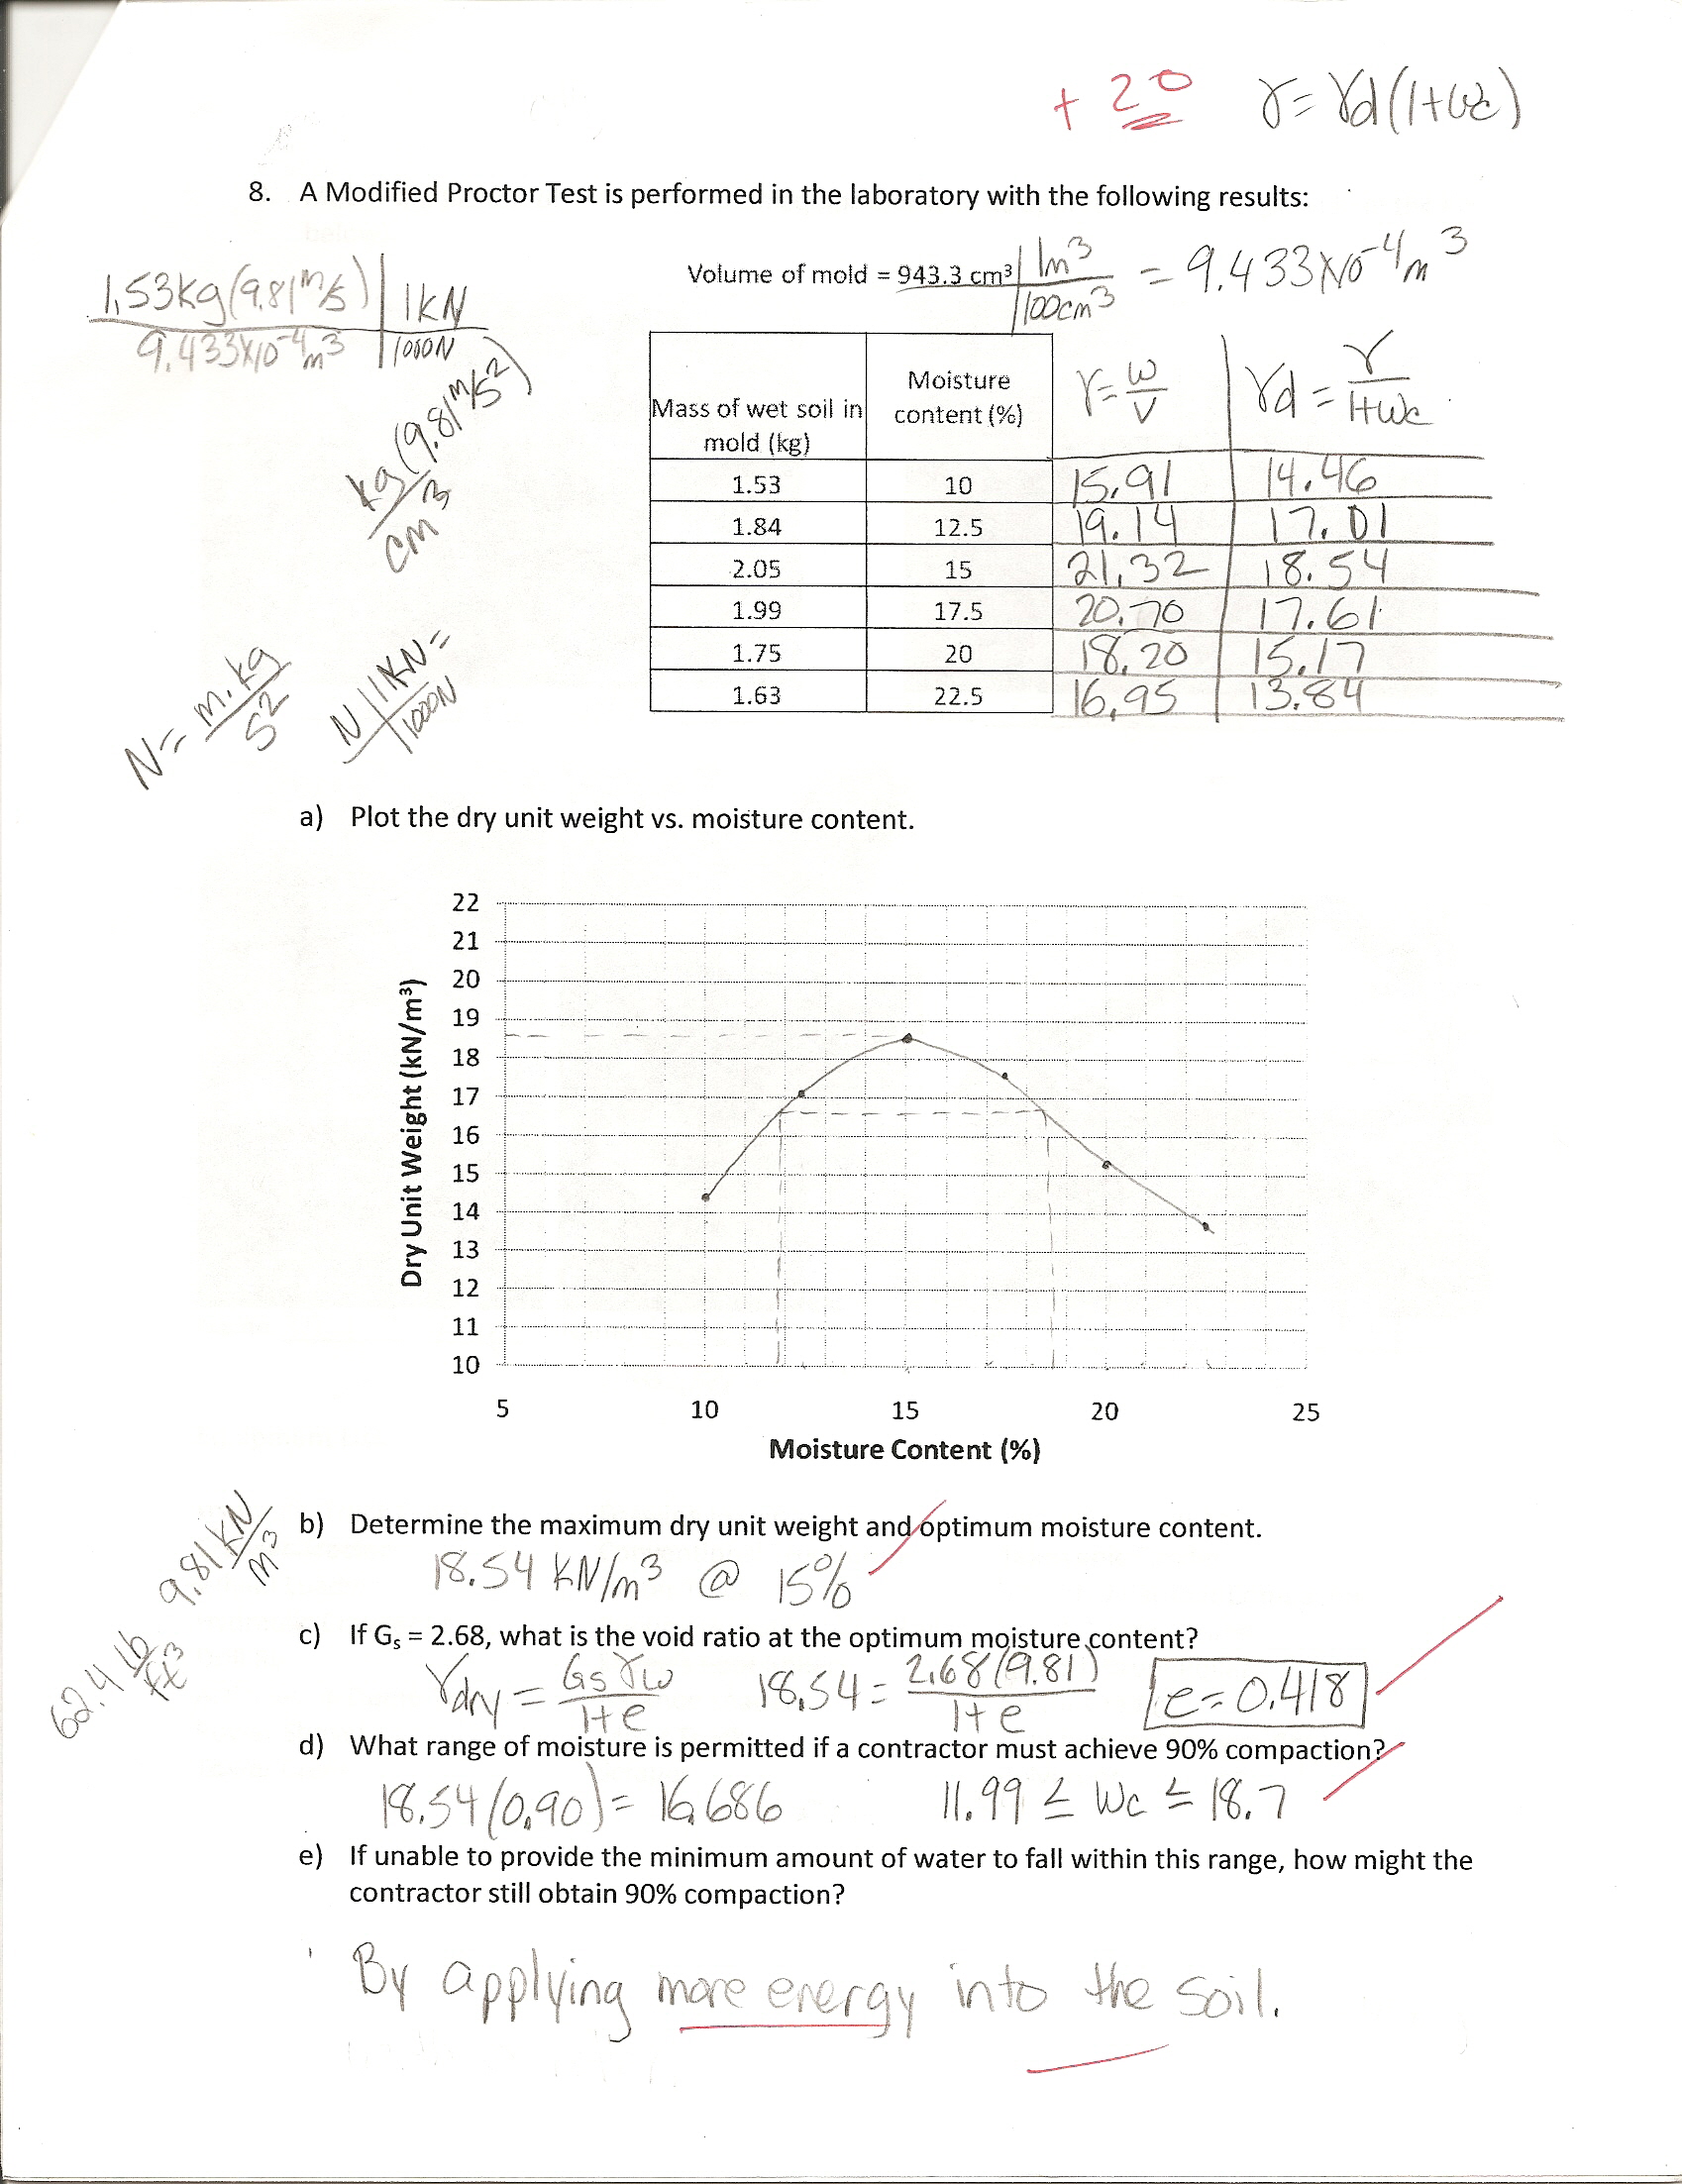 + 20 γ = γd(1+wc)
8. A Modified Proctor Test is performed in the laboratory with the following results:
Volume of mold = 943.3 cm³ | 1m³ / 100cm³ = 9.433x10⁻⁴ m³
1.53kg(9.81m/s) / 9.433x10⁻⁴m³ | 1kN / 1000N
kg(9.81m/s²) / cm³
N = m·kg / s²
N | 1kN / 1000N =
Mass of wet soil in mold (kg) | Moisture content (%) | γ = w/v | γd = γ/1+wc
1.53 | 10 | 15.91 | 14.46
1.84 | 12.5 | 19.14 | 17.01
2.05 | 15 | 21.32 | 18.54
1.99 | 17.5 | 20.70 | 17.61
1.75 | 20 | 18.20 | 15.17
1.63 | 22.5 | 16.95 | 13.84
a) Plot the dry unit weight vs. moisture content.
Dry Unit Weight (kN/m³)
22
21
20
19
18
17
16
15
14
13
12
11
10
5 10 15 20 25
Moisture Content (%)
9.81 kN/m³
62.4 lb/ft³
b) Determine the maximum dry unit weight and optimum moisture content.
18.54 kN/m³ @ 15%
c) If Gs = 2.68, what is the void ratio at the optimum moisture content?
γdry = Gsγw / 1+e 18.54 = 2.68(9.81) / 1+e e = 0.418
d) What range of moisture is permitted if a contractor must achieve 90% compaction?
18.54(0.90) = 16.686 11.99 ≤ Wc ≤ 18.7
e) If unable to provide the minimum amount of water to fall within this range, how might the
contractor still obtain 90% compaction?
By applying more energy into the soil.